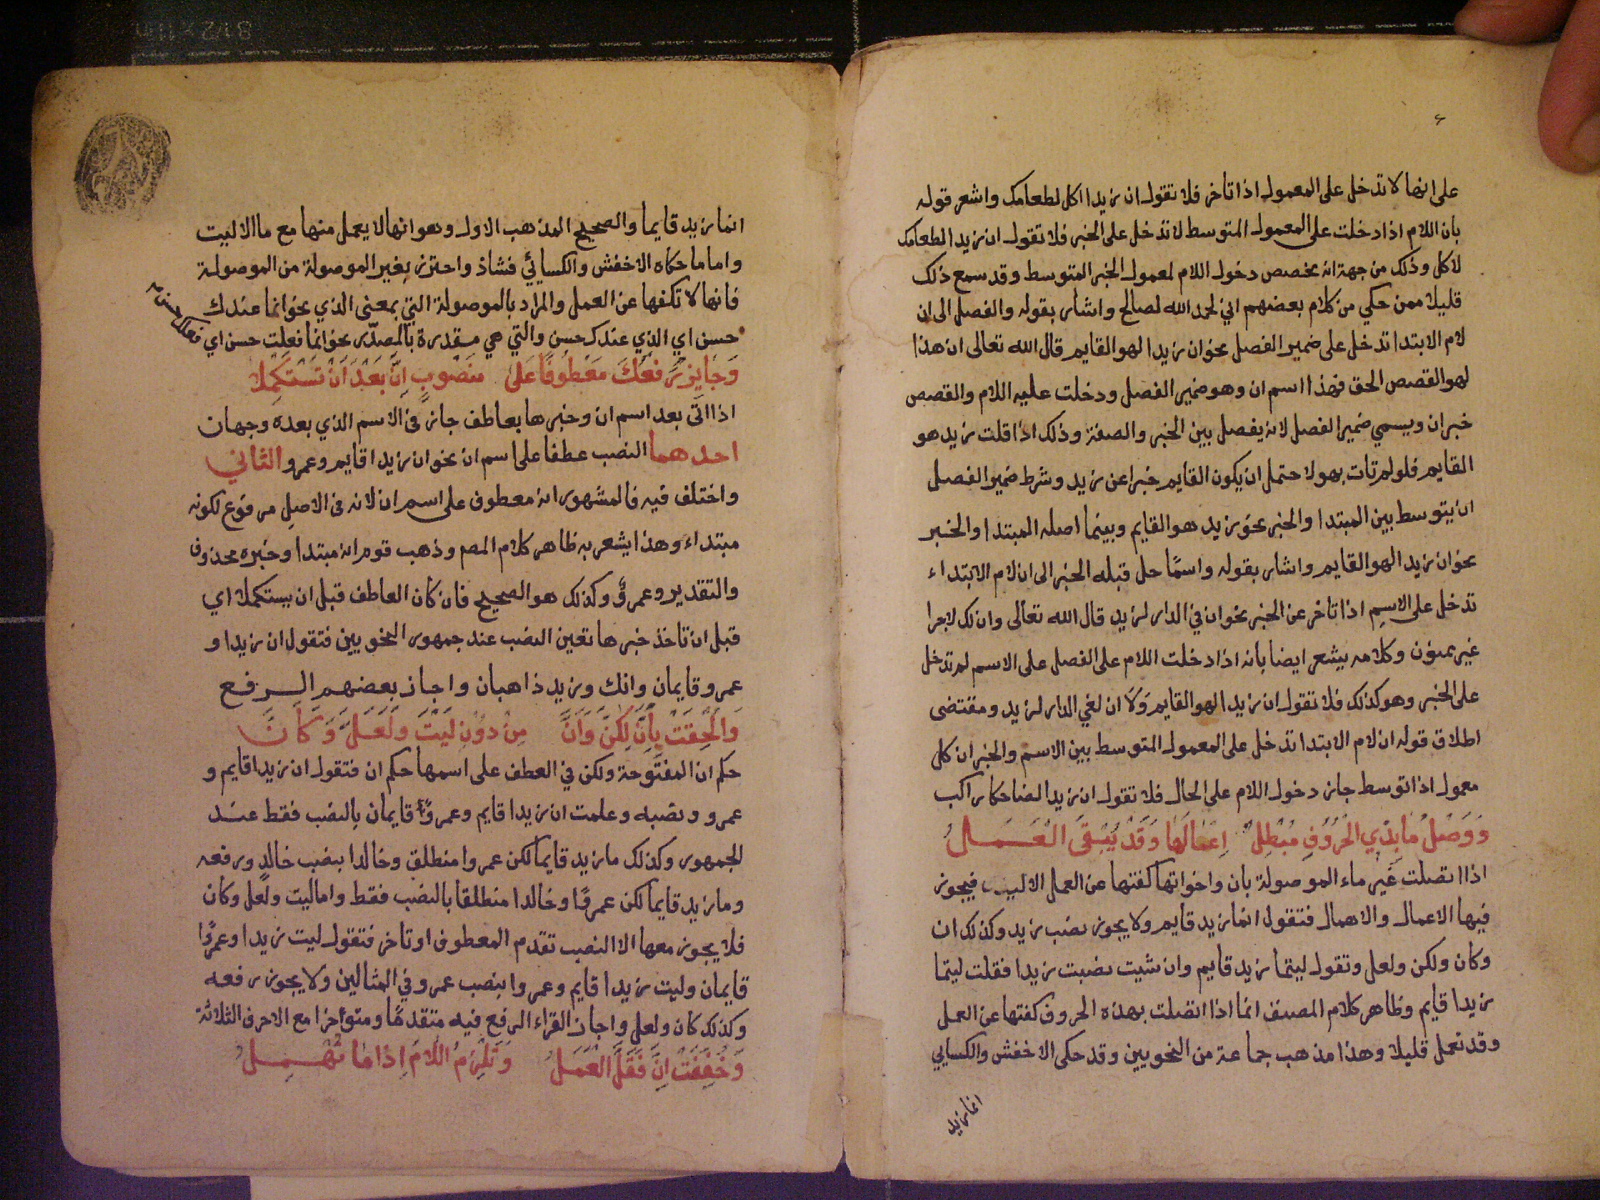 على انها لا تدخل على المعمول اذا تاخر فلا تقول ان زيدا اكل لطعامك واشعر قوله
بان اللام اذا دخلت على المعمول المتوسط لا تدخل على الخبر فلا تقول ان زيدا لطعامك
لاكل وذلك من جهة انه يخصص دخول اللام لمعمول الخبر المتوسط وقد سمع ذلك
قليلا ممن حكي من كلام بعضهم اني لحمد الله لصالح واشار بقوله والفصل الى ان
لام الابتدا تدخل على ضمير الفصل نحو ان زيدا لهو القايم قال الله تعالى ان هذا
لهو القصص الحق فهذا اسم ان وهو ضمير الفصل ودخلت عليه اللام والقصص
خبر ان ويسمي ضمير الفصل لانه يفصل بين الخبر والصفة وذلك اذا قلت زيد هو
القايم فلو لم تات بهو لاحتمل ان يكون القايم خبرا عن زيد وشرط ضمير الفصل
ان يتوسط بين المبتدا والخبر نحو زيد هو القايم وبينما اصله المبتدا والخبر
نحو ان زيدا لهو القايم واشار بقوله واسمًا حل قبله الخبر الى ان لام الابتداء
تدخل على الاسم اذا تاخر عن الخبر نحو ان في الدار لزيد قال الله تعالى وان لك لاجرا
غير ممنون وكلامه يشعر ايضا بانه اذا دخلت اللام على الفصل على الاسم لم تدخل
على الخبر وهو كذلك فلا تقول ان زيدا لهو القايم ولا ان لفي الدار لزيد ومقتضى
اطلاق قوله ان لام الابتدا تدخل على المعمول المتوسط بين الاسم والخبر ان كل
معمول اذا توسط جاز دخول اللام على الحال فلا تقول ان زيدا لضاحكا راكب
وَوَصْلُ مَا بِذِي الحُرُوفِ مُبْطِلُ اِعْمَالَهَا وَقَدْ يُبَقَّى العَمَلُ
اذا اتصلت غير ماء الموصولة بان واخواتها كفتها عن العمل الا ليت فيجوز
فيها الاعمال والاهمال فتقول انما زيد قايم ولا يجوز نصب زيد وكذلك ان
وكان ولكن ولعل وتقول ليتما زيد قايم وان شيت نصبت زيدا فقلت ليتما
زيدا قايم وظاهر كلام المصنف انما اذا اتصلت بهذه الحروف كفتها عن العمل
وقد تعمل قليلا وهذا مذهب جماعة من النحويين وقد حكى الاخفش والكسايي
انما زيد
انما زيد قايما والصحيح المذهب الاول وهو انها لا يعمل منها مع ما الا ليت
واما ما حكاه الاخفش والكسائي فشاذ واحترز بغير الموصولة من الموصولة
فانها لا تكفها عن العمل والمراد بالموصولة التي بمعنى الذي نحو انما عندك
حسن اي الذي عندك حسن والتي هي مقدرة بالمصدر نحو انما فعلت حسن اي
فعلك حسن
وَجَايِز رَفْعُكَ مَعْطُوفًا عَلىَ مَنْصُوبِ اِنَّ بَعْدَ اَنْ تَسْتَكْمِلَا
اذا اتى بعد اسم ان وخبرها بعاطف جاز في الاسم الذي بعده وجهان
احدهما النصب عطفا على اسم ان نحو ان زيدا قايم وعمرو والثاني
واختلف فيه فالمشهور انه معطوف على اسم ان لانه في الاصل مرفوع لكونه
مبتداء وهذا يشعر به ظاهر كلام المصم وذهب قوم انه مبتدا وخبره محذوف
والتقدير وعمرو وكذلك هو الصحيح فان كان العاطف قبل ان يستكمل اي
قبل ان تاخذ خبرها تعين النصب عند جمهور النحويين فتقول ان زيدا و
عمرو قايمان وانك وزيد ذاهبان واجاز بعضهم الرفع
وَاُلْحِقَتْ بِاَنَّ لٰكِنَّ وَاَنَّ مِنْ دُوْنِ لَيْتَ وَلَعَلَّ وَكَانَّ
حكم ان المفتوحة ولكن في العطف على اسمها حكم ان فتقول ان زيدا قايم و
عمرو ونصبه وعلمت ان زيدا قايم وعمرو قايمان بالنصب فقط عند
الجمهور وكذلك ما زيد قايما لكن عمروا منطلق وخالدا بنصب خالد ورفعه
وما زيد قايما لكن عمرًا وخالدا منطلقا بالنصب فقط واما ليت ولعل وكان
فلا يجوز معها الا النصب تقدم المعطوف او تاخر فتقول ليت زيدا وعمرًا
قايمان وليت زيدا قايم وعمروا بنصب عمرو في المثالين ولا يجوز رفعه
وكذلك كان ولعل واجاز القراء الرفع فيه متقدمًا ومتوأخرا مع الاحرف الثلاثة
وَخُفِّفَتْ اِنَّ فَقَلَّ الْعَمَلُ وَتَلْزَمُ اللَّامُ اِذَا مَا تُهْمِلُ